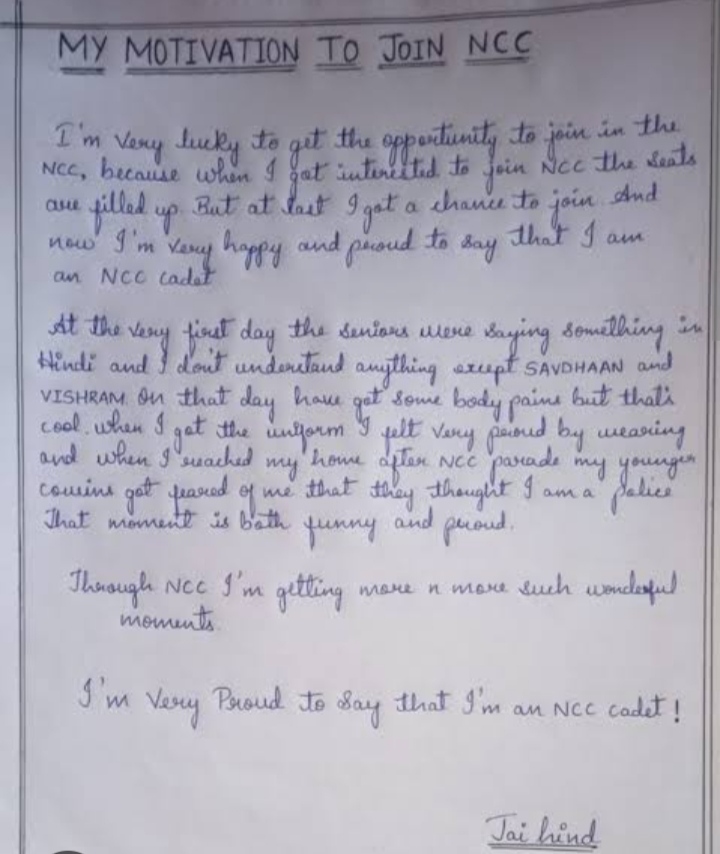 MY MOTIVATION TO JOIN NCC
I'm very lucky to get the opportunity to join in the
NCC, because when I got interested to join NCC the seats
are filled up. But at last I got a chance to join. And
now I'm very happy and proud to say that I am
an NCC cadet
At the very first day the seniors were saying something in
Hindi and I don't understand anything except SAVDHAAN and
VISHRAM. On that day have got some body pains but that's
cool. when I got the uniform I felt very proud by wearing
and when I reached my home after NCC parade my younger
cousins got feared of me that they thought I am a police
That moment is both funny and proud.
Through NCC I'm getting more n more such wonderful
moments.
I'm Very Proud to Say that I'm an NCC cadet!
Jai hind